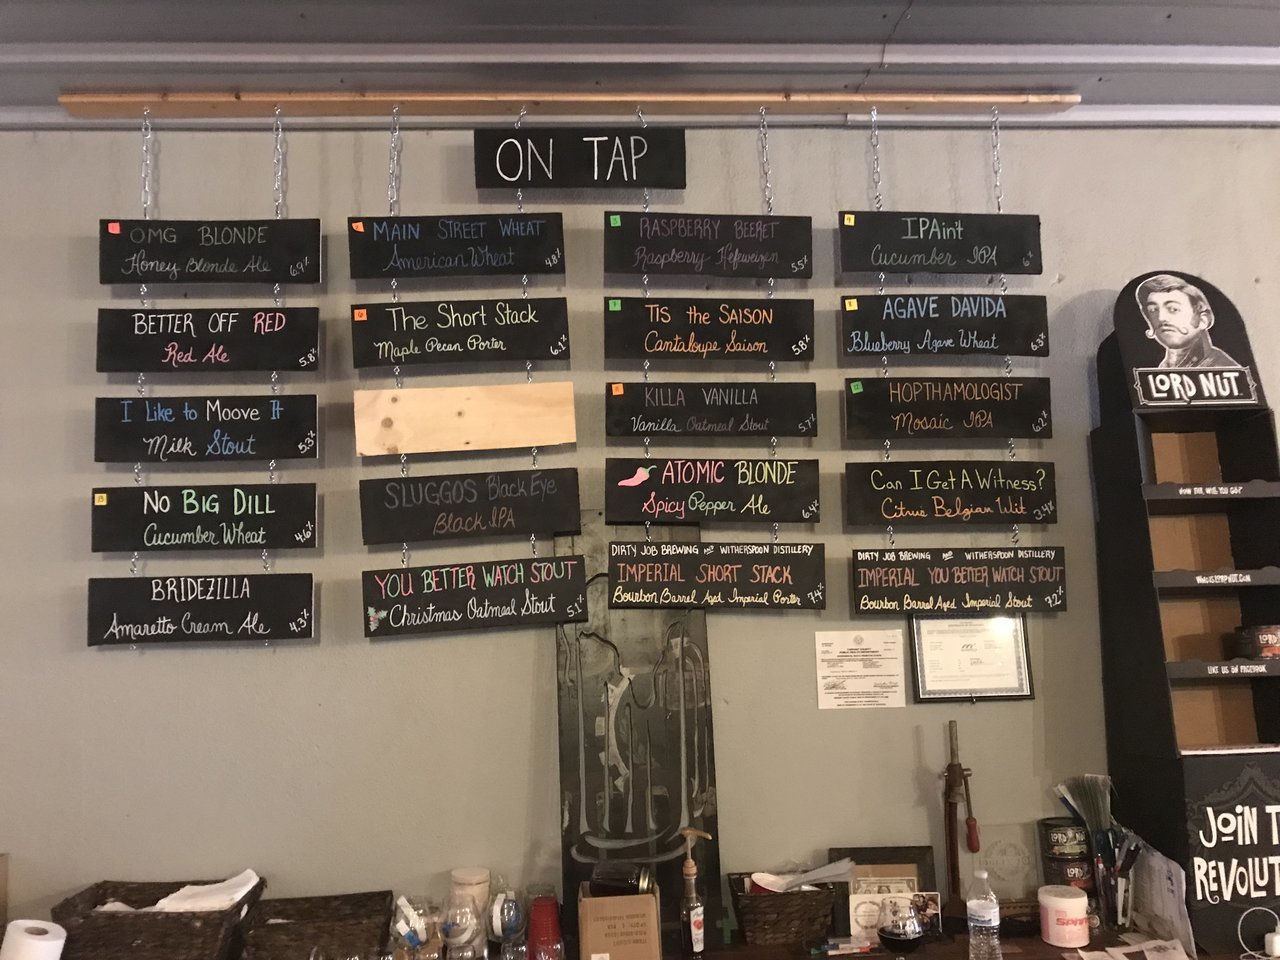 ON TAP
1
OMG BLONDE
Honey Blonde Ale 6.9%
BETTER OFF RED
Red Ale 5.8%
I Like to Moove It
Milk Stout 5.3%
13
NO BIG DILL
Cucumber Wheat 4.6%
BRIDEZILLA
Amaretto Cream Ale 4.3%
2
MAIN STREET WHEAT
American Wheat 4.8%
6
The Short Stack
Maple Pecan Porter 6.1%
SLUGGOS Black Eye
Black IPA
YOU BETTER WATCH STOUT
Christmas Oatmeal Stout 5.1%
3
RASPBERRY BEERET
Raspberry Hefeweizen 5.5%
7
TIS the SAISON
Cantaloupe Saison 5.8%
11
KILLA VANILLA
Vanilla Oatmeal Stout 5.7%
ATOMIC BLONDE
Spicy Pepper Ale 6.4%
DIRTY JOB BREWING AND WITHERSPOON DISTILLERY
IMPERIAL SHORT STACK
Bourbon Barrel Aged Imperial Porter 7.4%
4
IPAin't
Cucumber IPA 6%
8
AGAVE DAVIDA
Blueberry Agave Wheat 6.3%
12
HOPTHAMOLOGIST
Mosaic IPA 6.2%
Can I Get A Witness?
Citrus Belgian Wit 3.4%
DIRTY JOB BREWING AND WITHERSPOON DISTILLERY
IMPERIAL YOU BETTER WATCH STOUT
Bourbon Barrel Aged Imperial Stout 7.2%
LORD NUT
HOW FAR WILL YOU GO?
WWW.LORDNUT.COM
LIKE US ON FACEBOOK
LORD
JOIN T
REVOLUT
LORD NUT